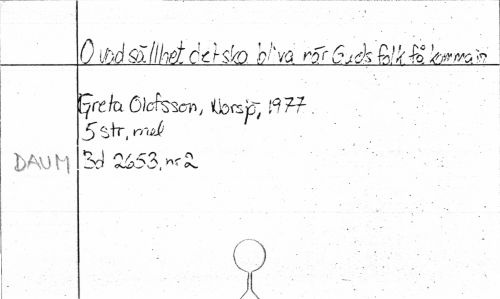 O vad sällhet det ska bliva når Guds folk få komma in
Greta Olofsson, Norsjö, 1977
5 str, mel
DAUM Bd 2653, nr 2